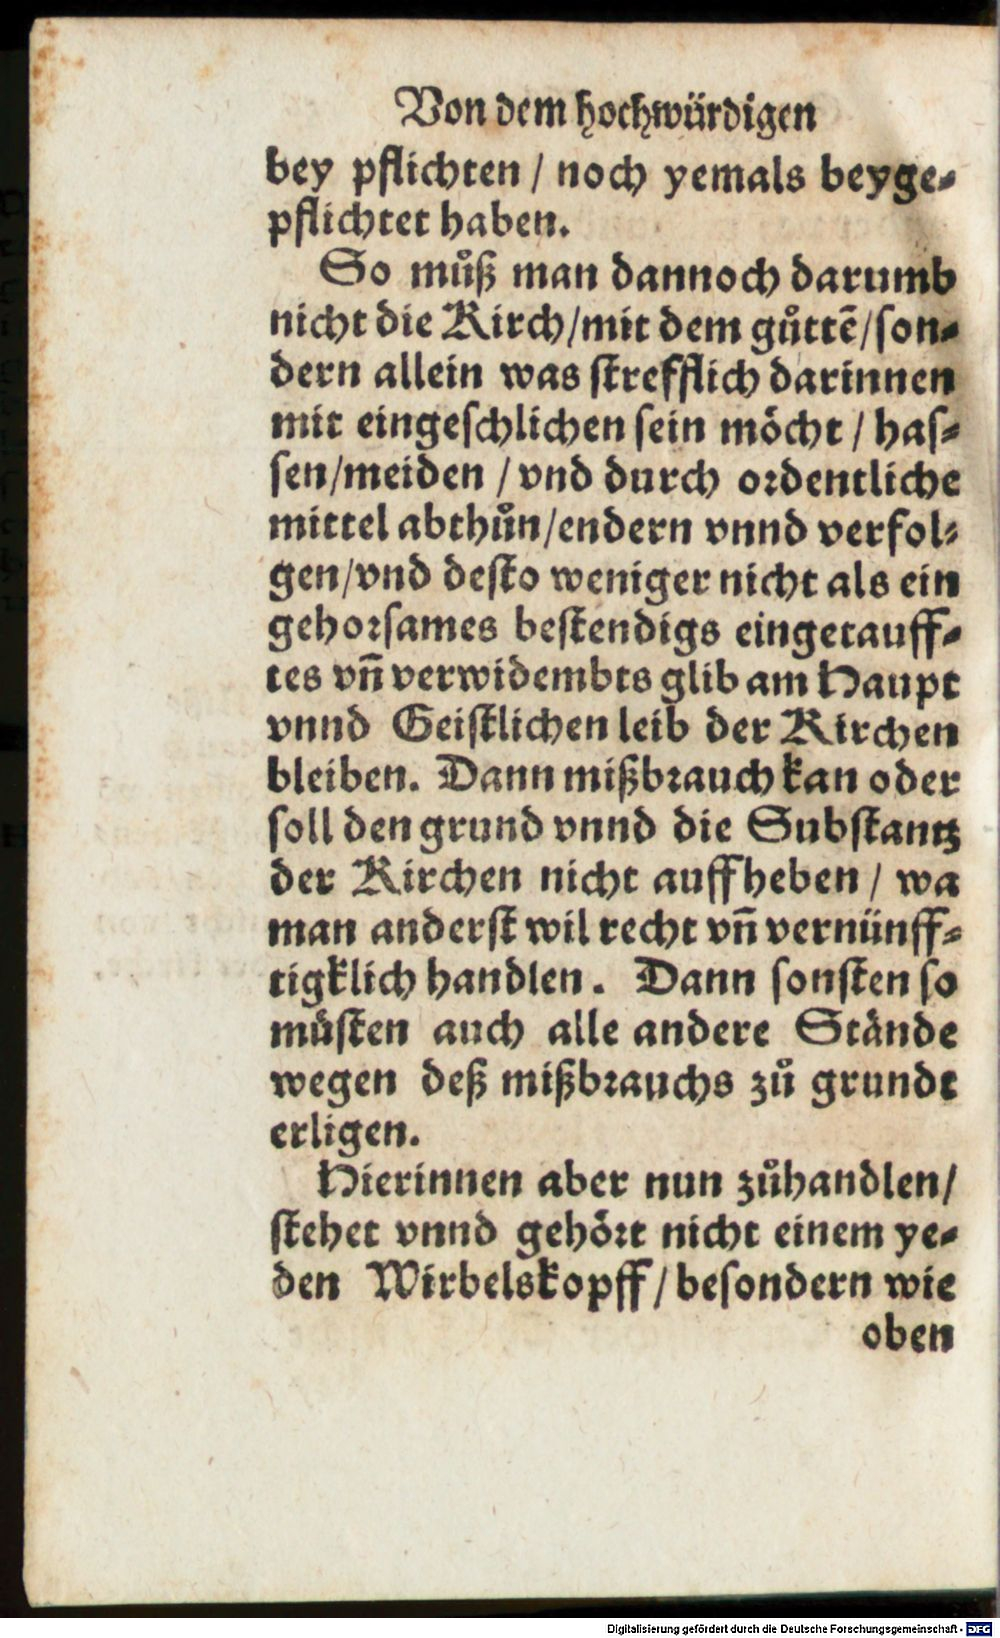 Von dem hochwürdigen
bey pflichten / noch yemals beyge-
pflichtet haben.
So můß man dannoch darumb
nicht die Kirch/mit dem gůttē/son-
dern allein was strefflich darinnen
mit eingeschlichen sein möcht / has-
sen/meiden / vnd durch ordentliche
mittel abthůn/endern vnnd verfol-
gen/vnd desto weniger nicht als ein
gehorsames bestendigs eingetauff-
tes vñ verwidembts glib am Haupt
vnnd Geistlichen leib der Kirchen
bleiben. Dann mißbrauch kan oder
soll den grund vnnd die Substantz
der Kirchen nicht auffheben / wa
man anderst wil recht vñ vernünff-
tigklich handlen. Dann sonsten so
müsten auch alle andere Stände
wegen deß mißbrauchs zů grundt
erligen.
Hierinnen aber nun zůhandlen/
stehet vnnd gehört nicht einem ye-
den Wirbelskopff / besondern wie
oben
Digitalisierung gefördert durch die Deutsche Forschungsgemeinschaft - DFG